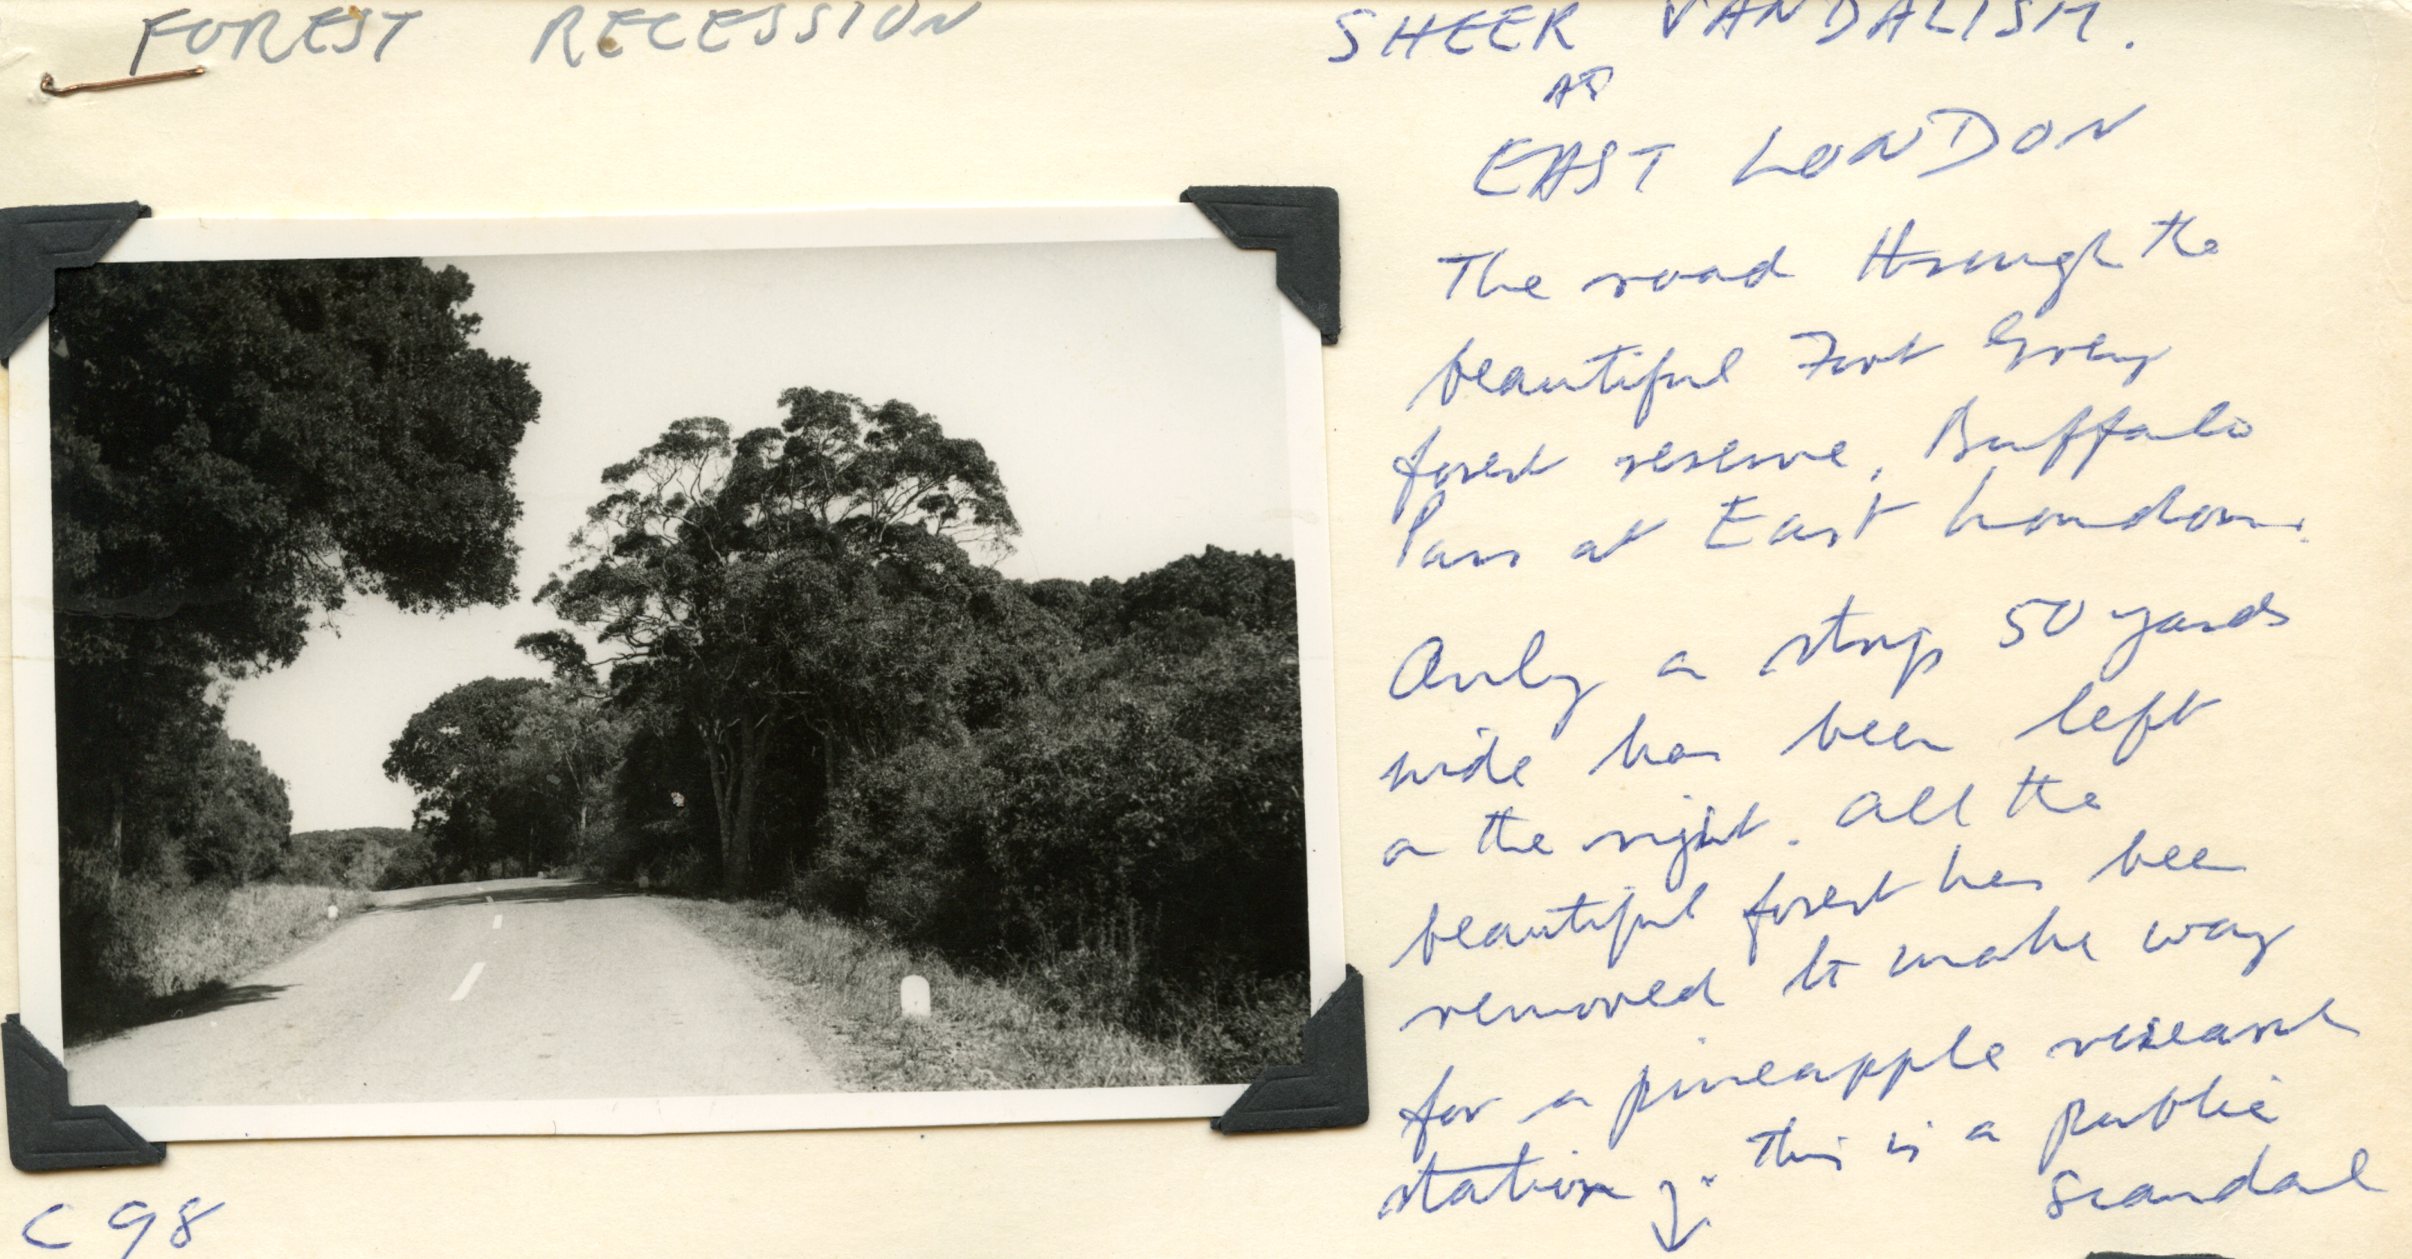 FOREST RECESSION
SHEER VANDALISM.
AT
EAST LONDON
The road through the
beautiful Fort Grey
forest reserve, Buffalo
Pass at East London.
Only a strip 50 yards
wide has been left
on the right. All the
beautiful forest has been
removed to make way
for a pineapple research
station. This is a public
scandal
C98